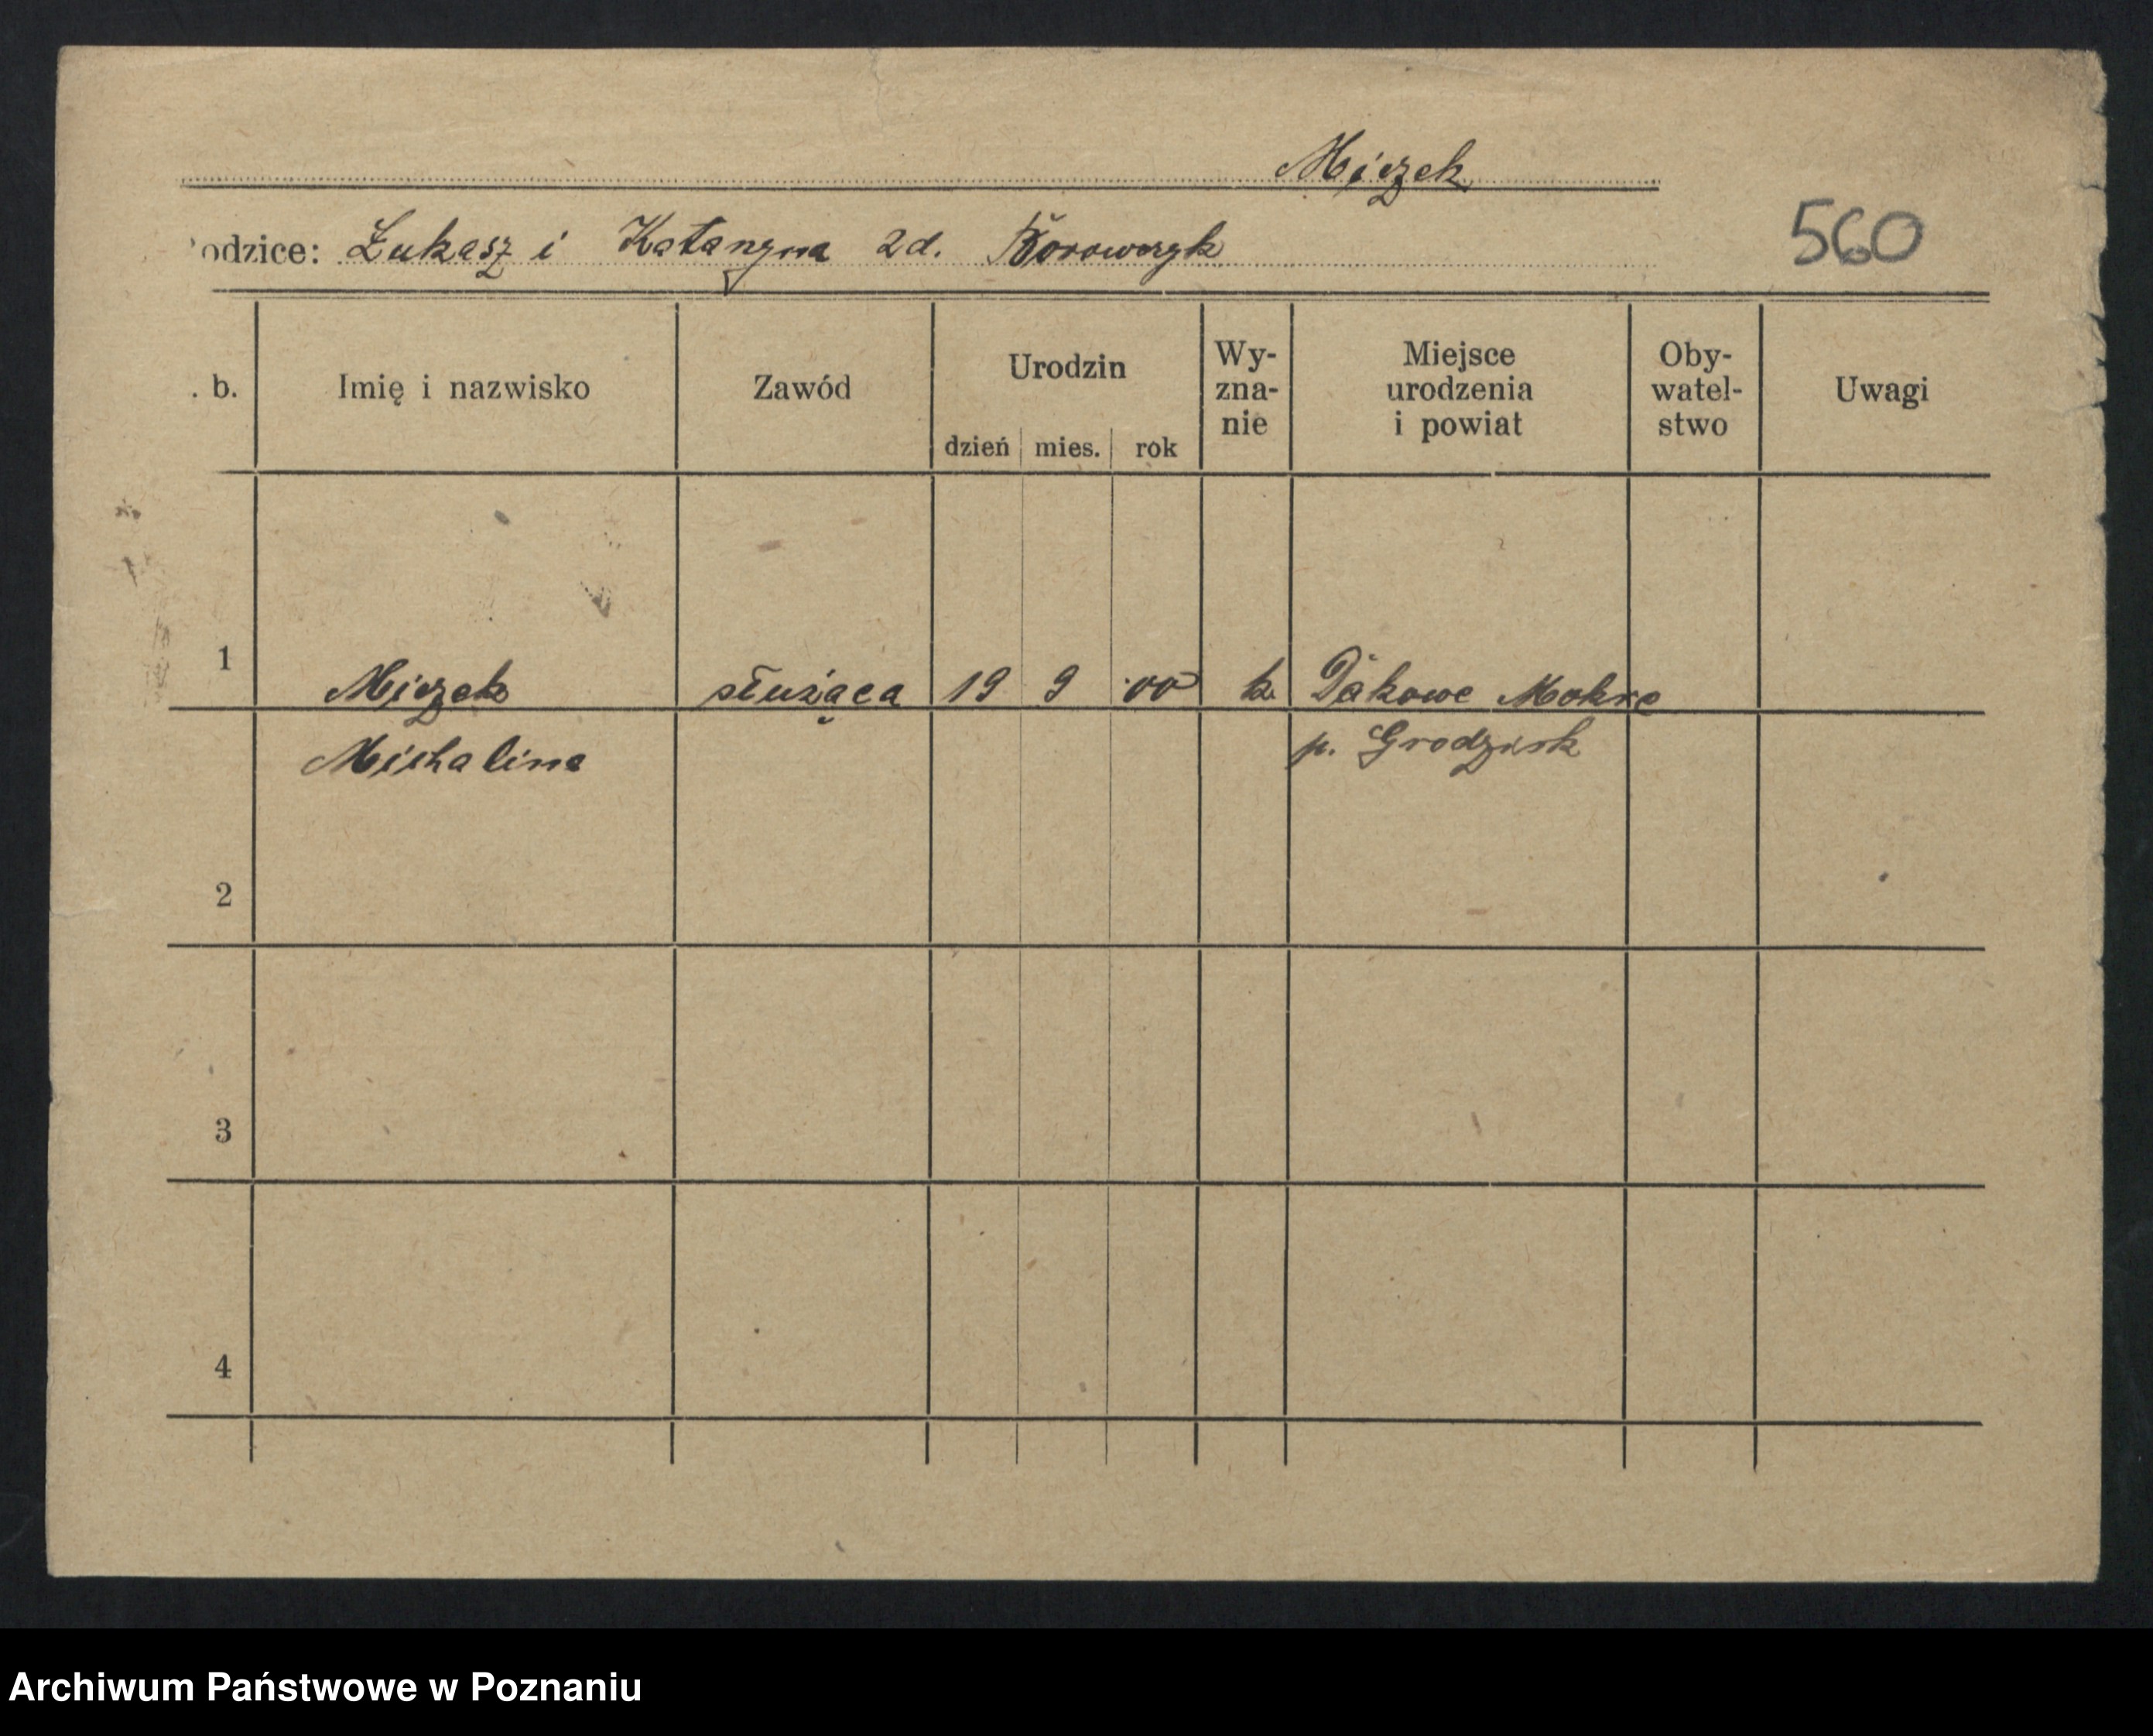 Miczek
odzice: Łukasz i Katarzyna zd. Borowczyk
560
. b.
Imię i nazwisko
Zawód
Urodzin
dzień mies. rok
Wy-
zna-
nie
Miejsce
urodzenia
i powiat
Oby-
watel-
stwo
Uwagi
1 Miczek służąca 19 9 00 k. Dakowe Mokre
Michalina p. Grodzisk
2
3
4
Archiwum Państwowe w Poznaniu